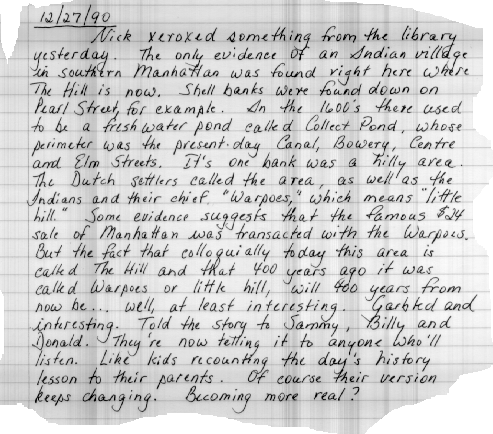 12/27/90
Nick xeroxed something from the library
yesterday. The only evidence of an Indian village
in southern Manhattan was found right here where
The Hill is now. Shell banks were found down on
Pearl Street, for example. In the 1600's there used
to be a fresh water pond called Collect Pond, whose
perimeter was the present-day Canal, Bowery, Centre
and Elm Streets. It's one bank was a hilly area.
The Dutch settlers called the area, as well as the
Indians and their chief, "Warpoes," which means "little
hill." Some evidence suggests that the famous $24
sale of Manhattan was transacted with the Warpoes.
But the fact that colloquially today this area is
called The Hill and that 400 years ago it was
called Warpoes or little hill, will 400 years from
now be... well, at least interesting. Garbled and
interesting. Told the story to Sammy, Billy and
Donald. They're now telling it to anyone who'll
listen. Like kids recounting the day's history
lesson to their parents. Of course their version
keeps changing. Becoming more real?